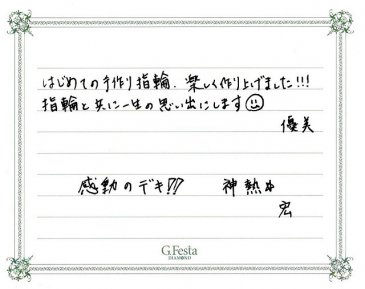 はじめての手作り指輪、楽しく作り上げました!!!
指輪と共に一生の思い出にします
優美
感動のデキ!?
宏
G.Festa
DIAMOND